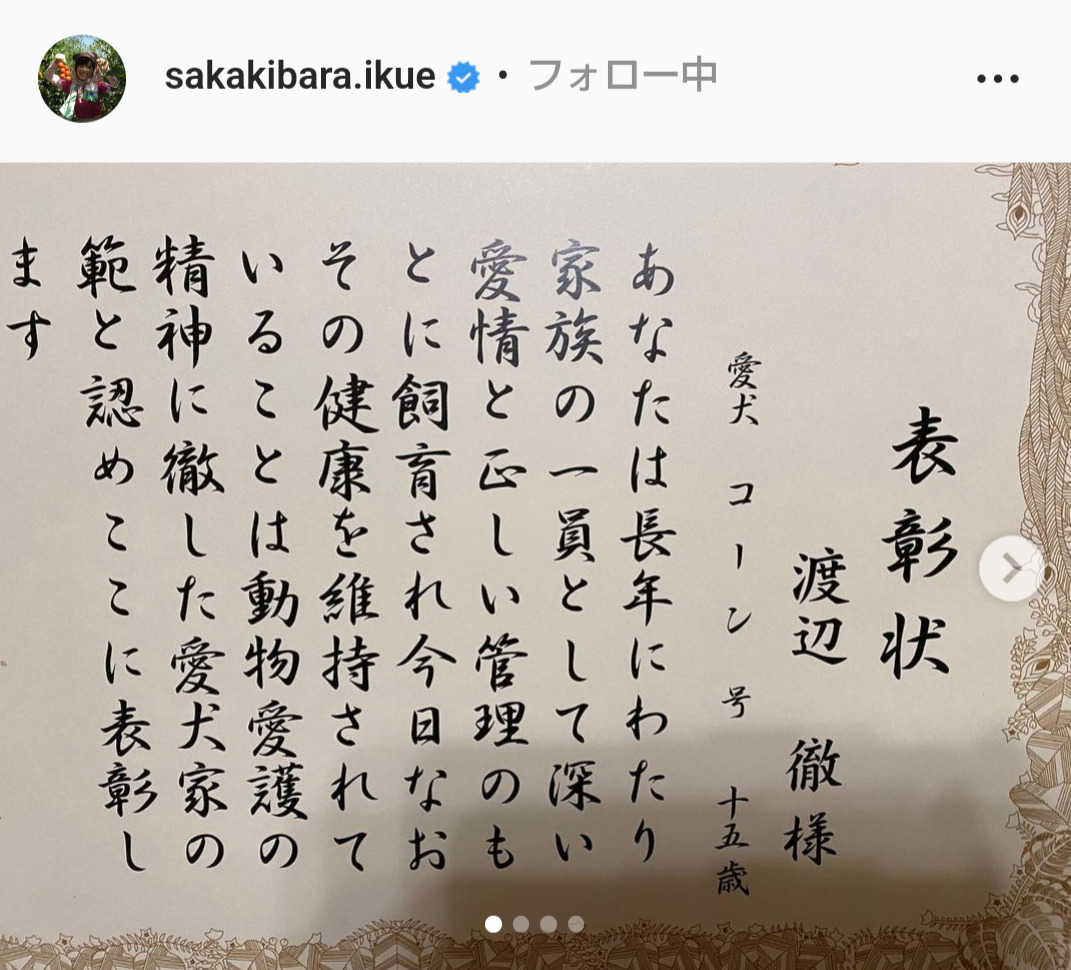 sakakibara.ikue • フォロー中
表彰状
渡辺 徹様
愛犬 コーン号 十五歳
あなたは長年にわたり
家族の一員として深い
愛情と正しい管理のも
とに飼育され今日なお
その健康を維持されて
いることは動物愛護の
精神に徹した愛犬家の
範と認めここに表彰し
ます